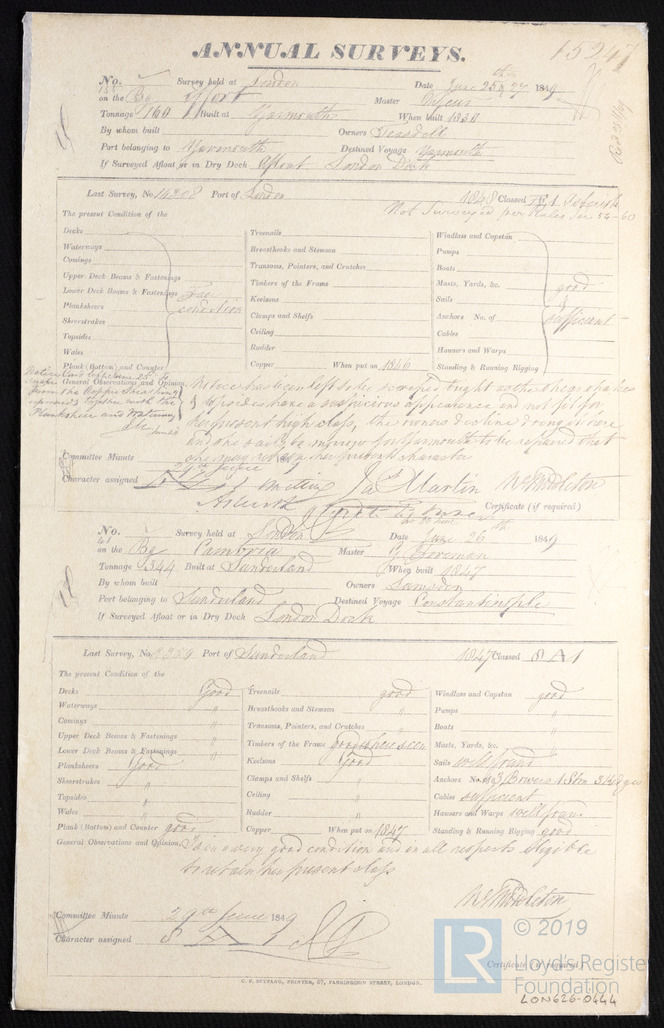 ANNUAL SURVEYS.
15247
No. Survey held at London Date June 25th & 27 1849
on the Bg Effort Master
Tonnage 160 Built at Yarmouth When built 1838
By whom built Owners Teasdell
Port belonging to Yarmouth Destined Voyage Yarmouth
If Surveyed Afloat or in Dry Dock Afloat London Dock
Last Survey, No. 14308 Port of London 1848 Classed
Not Surveyed per Rules Sec 54-60
The present Condition of the
Decks
Waterways
Comings
Upper Deck Beams & Fastenings
Lower Deck Beams & Fastenings
Planksheers
Sheerstrakes
Topsides
Wales
Plank (Bottom) and Counter
Fair condition
Treenails
Breasthooks and Stemson
Transoms, Pointers, and Crutches
Timbers of the Frame
Keelsons
Clamps and Shelfs
Ceiling
Rudder
Copper When put on 1846
Windlass and Capstan
Pumps
Boats
Masts, Yards, &c.
Sails
Anchors No. of
Cables
Hawsers and Warps
Standing & Running Rigging
good & sufficient
General Observations and Opinion, Notice has been left to be scraped bright as there
topsides have a suspicious appearance and not fit for
her present high class, the owners decline doing it here
and she sails to morrow for Yarmouth to be repaired that
she may retain her present character
from the Copper Sheathing
upwards together with the
Planksheer and Waterway
Committee Minute 29th June 1849
Character assigned
Jas Martin Wm Middleton
Certificate (if required)
No. Survey held at London Date June 26th 1849
on the Bg Cambria Master Foreman
Tonnage 344 Built at Sunderland When built 1847
By whom built Owners Lamsdon
Port belonging to Sunderland Destined Voyage Constantinople
If Surveyed Afloat or in Dry Dock London Dock
Last Survey, No. Port of Sunderland 1847 Classed 8 A 1
The present Condition of the
Decks Good
Waterways "
Comings "
Upper Deck Beams & Fastenings "
Lower Deck Beams & Fastenings "
Planksheers Good
Sheerstrakes "
Topsides "
Wales "
Plank (Bottom) and Counter good
Treenails good
Breasthooks and Stemson "
Transoms, Pointers, and Crutches "
Timbers of the Frame Good where seen
Keelsons Good
Clamps and Shelfs "
Ceiling "
Rudder "
Copper When put on 1847
Windlass and Capstan good
Pumps "
Boats "
Masts, Yards, &c. "
Sails well found
Anchors No. of 3 Bowers 1 Stm 3 Kedges
Cables sufficient
Hawsers and Warps well found
Standing & Running Rigging good
General Observations and Opinion, Is in a very good condition and in all respects eligible
to retain her present class
Wm Middleton
Committee Minute 29th June 1849
Character assigned 8 A 1
Certificate (if required)
C. F. SEYFANG, PRINTER, 57, FARRINGDON STREET, LONDON.
LR
© 2019
Lloyd's Register
Foundation
LON626-0444